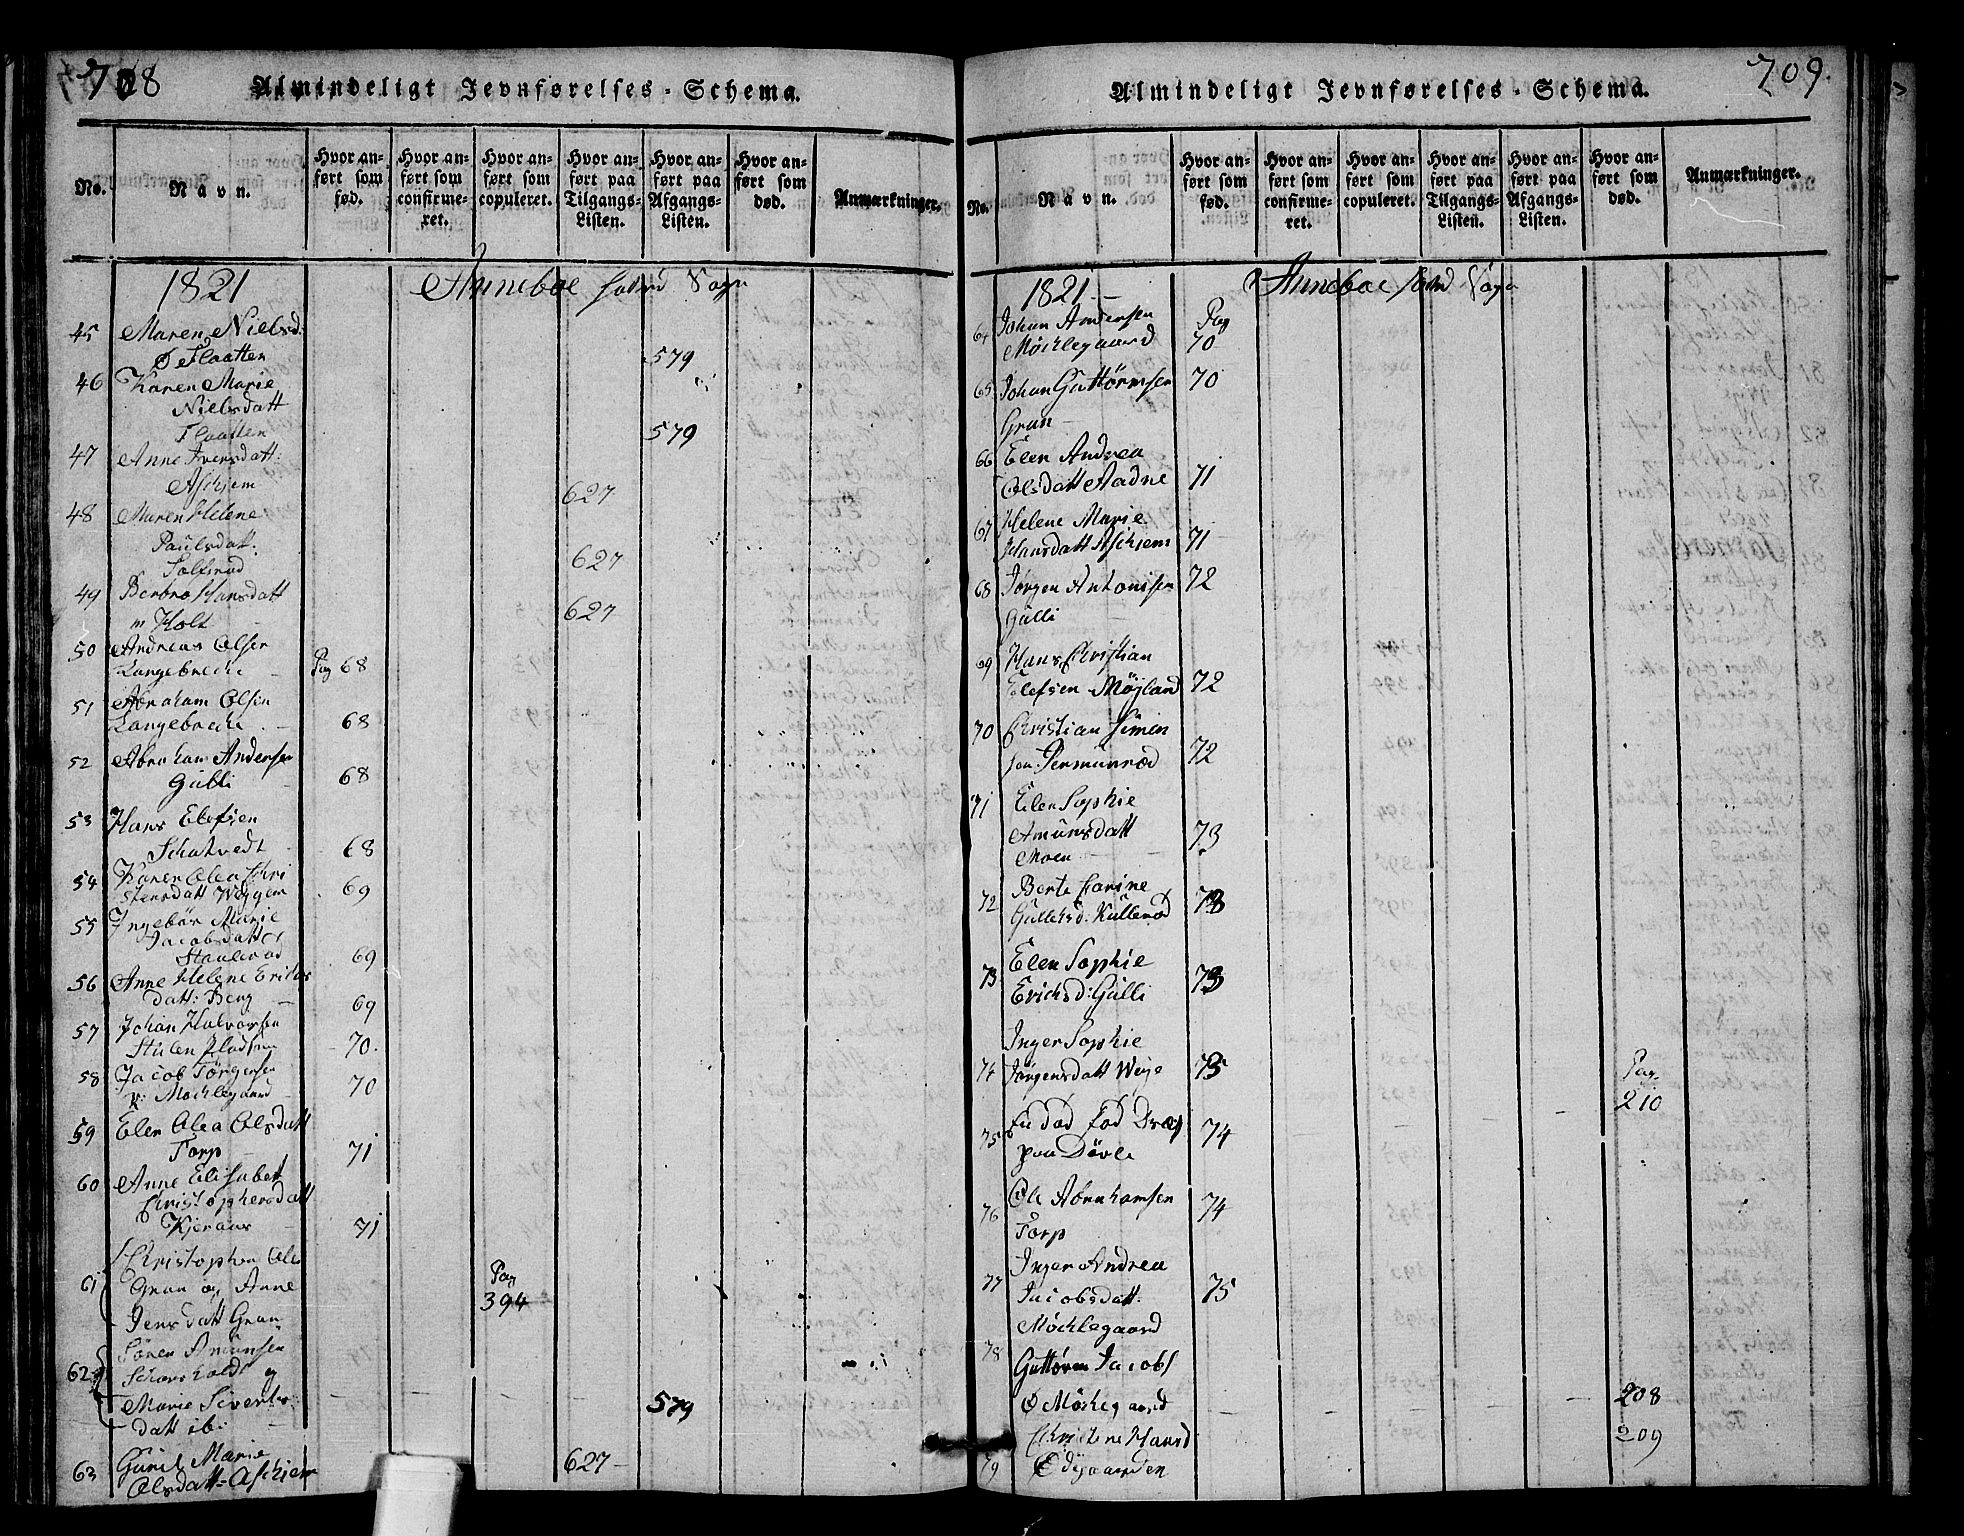 708
Almindeligt Jevnførelses-Schema.
No.
Navn.
Hvor an-
ført som
fød.
Hvor an-
ført som
confirme-
ret.
Hvor an-
ført som
copuleret.
Hvor an-
ført paa
Tilgangs-
Listen.
Hvor an-
ført paa
Afgangs-
Listen.
Hvor an-
ført som
død.
Anmærkninger.
1821 Anneboe Sogn
45 Maren Nielsd.
Ø Flaatten 579
46 Karen Marie
Nielsdatt
Flaatten 579
47 Anne Iversdatt:
Aschjem 627
48 Maren Helene
Paulsdat.
627
49 Berbro Hansdatt
m Holt 627
50 Andreas Olsen
Langebreche Pag 68
51 Abraham Olsen
Langebreche 68
52 Abraham Andersen
Gulli 68
53 Hans Elefsen
Schatvedt 68
54 Karen Olea Chri
stensdatt Weggem 69
55 Ingebör Marie
Jacobsdatter
69
56 Anne Helene Erichs
datt: Berg 69
57 Johan Halvorsen
70.
58 Jacob Jörgensen
K: Møchlegaard 70
59 Elen Olea Olsdatt
Torp 71
60 Anne Elisabet
Christophersdatt
Kjeraas 71
61 Christopher Ols
Gran og Anne Pag
Jensdatt Gran 394
62 Sören Amunsen
og
Marie Siverts
datt ibi 579
63 Marie
Olsdatt Aschjem 627
709.
Almindeligt Jevnførelses-Schema.
No.
Navn.
Hvor an-
ført som
fød.
Hvor an-
ført som
confirme-
ret.
Hvor an-
ført som
copuleret.
Hvor an-
ført paa
Tilgangs-
Listen.
Hvor an-
ført paa
Afgangs-
Listen.
Hvor an-
ført som
død.
Anmærkninger.
1821 Anneboe Sogn
64 Johan Andersen Pag
Møchlegaard 70
65 Johan Guttormsen 70
Gran
66 Elen Andrea
Olsdatt Aadne 71
67 Helene Marie
Hansdatt Aschjem 71
68 Jørgen Antonisen 72
Gulli
69 Hans Christian
Elefsen Møjland 72
70 Christian Simen
sen 72
71 Elen Sophie
Amunsdatt 73
Moen
72 Berte Carine
Gulleksd: Kullerød 73
73 Elen Sophie
Ericksd: Gulli 73
Inger Sophie
74 Jørgensdatt Weje 75 Pag.
210
75 død fød
paa 74
76 Ole Abrahamsen 74
Torp
77 Inger Andrea
Jacobsdatt. 75
Møchlegaard
78 Guttorm Jacobs
Ø Møchlegaard 208
Christine Hansd 209
79 Ødegaarden